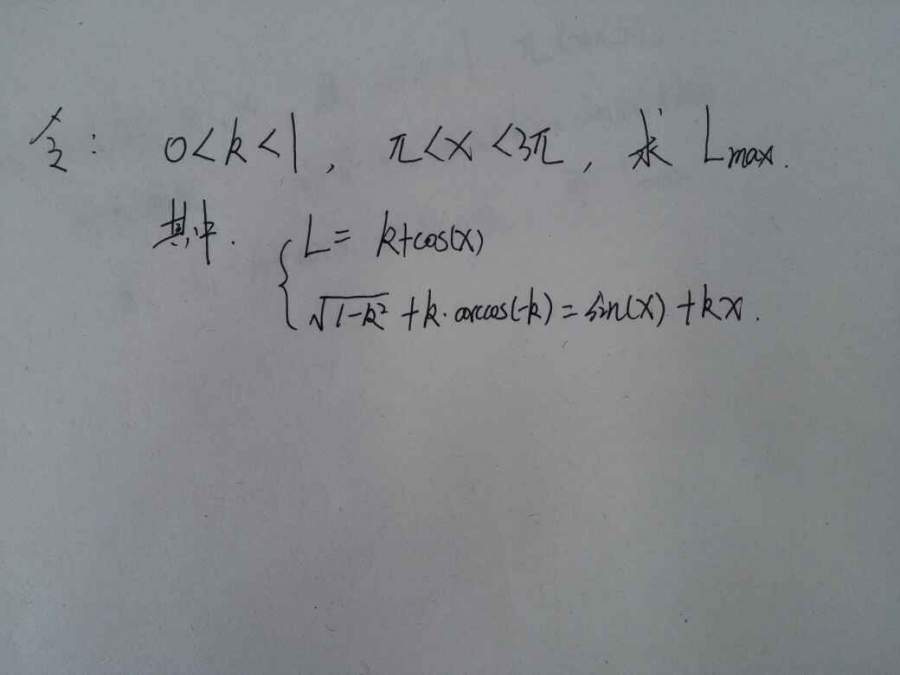 令: 0<k<1, π<x<3π, 求 Lmax.
其中. { L = k+cos(x)
√(1-k²) + k·arccos(-k) = sin(x) + kx.